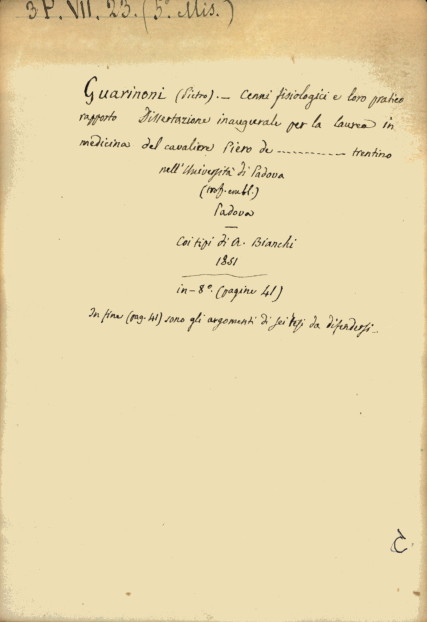 3 P. VII. 23. (5º Mis.)
Guarinoni (Pietro). — Cenni fisiologici e loro pratico
rapporto Dissertazione inaugurale per la laurea in
medicina del cavaliere Piero de ------------- trentino
nell'Università di Padova
(trof. embl.)
Padova
—
Coi tipi di A. Bianchi
1851
in-8º. (pagine 41)
In fine (pag. 41) sono gli argomenti di sei tesi da difendersi.